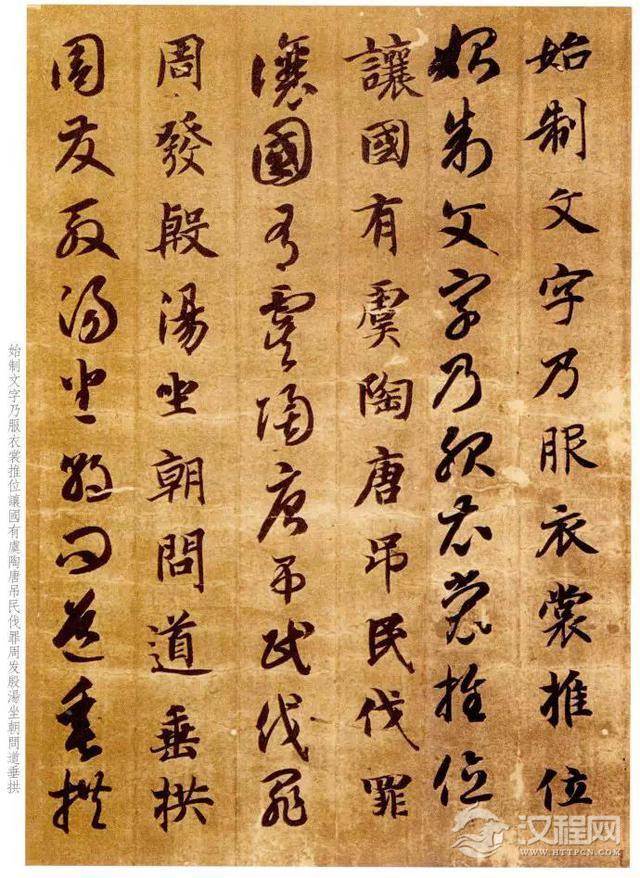 始制文字乃服衣裳推位
始制文字乃服衣裳推位
讓國有虞陶唐吊民伐罪
讓國有虞陶唐吊民伐罪
周發殷湯坐朝問道垂拱
周發殷湯坐朝問道垂拱
始制文字乃服衣裳推位讓國有虞陶唐吊民伐罪周发殷湯坐朝問道垂拱
汉程网
WWW.HTTPCN.COM